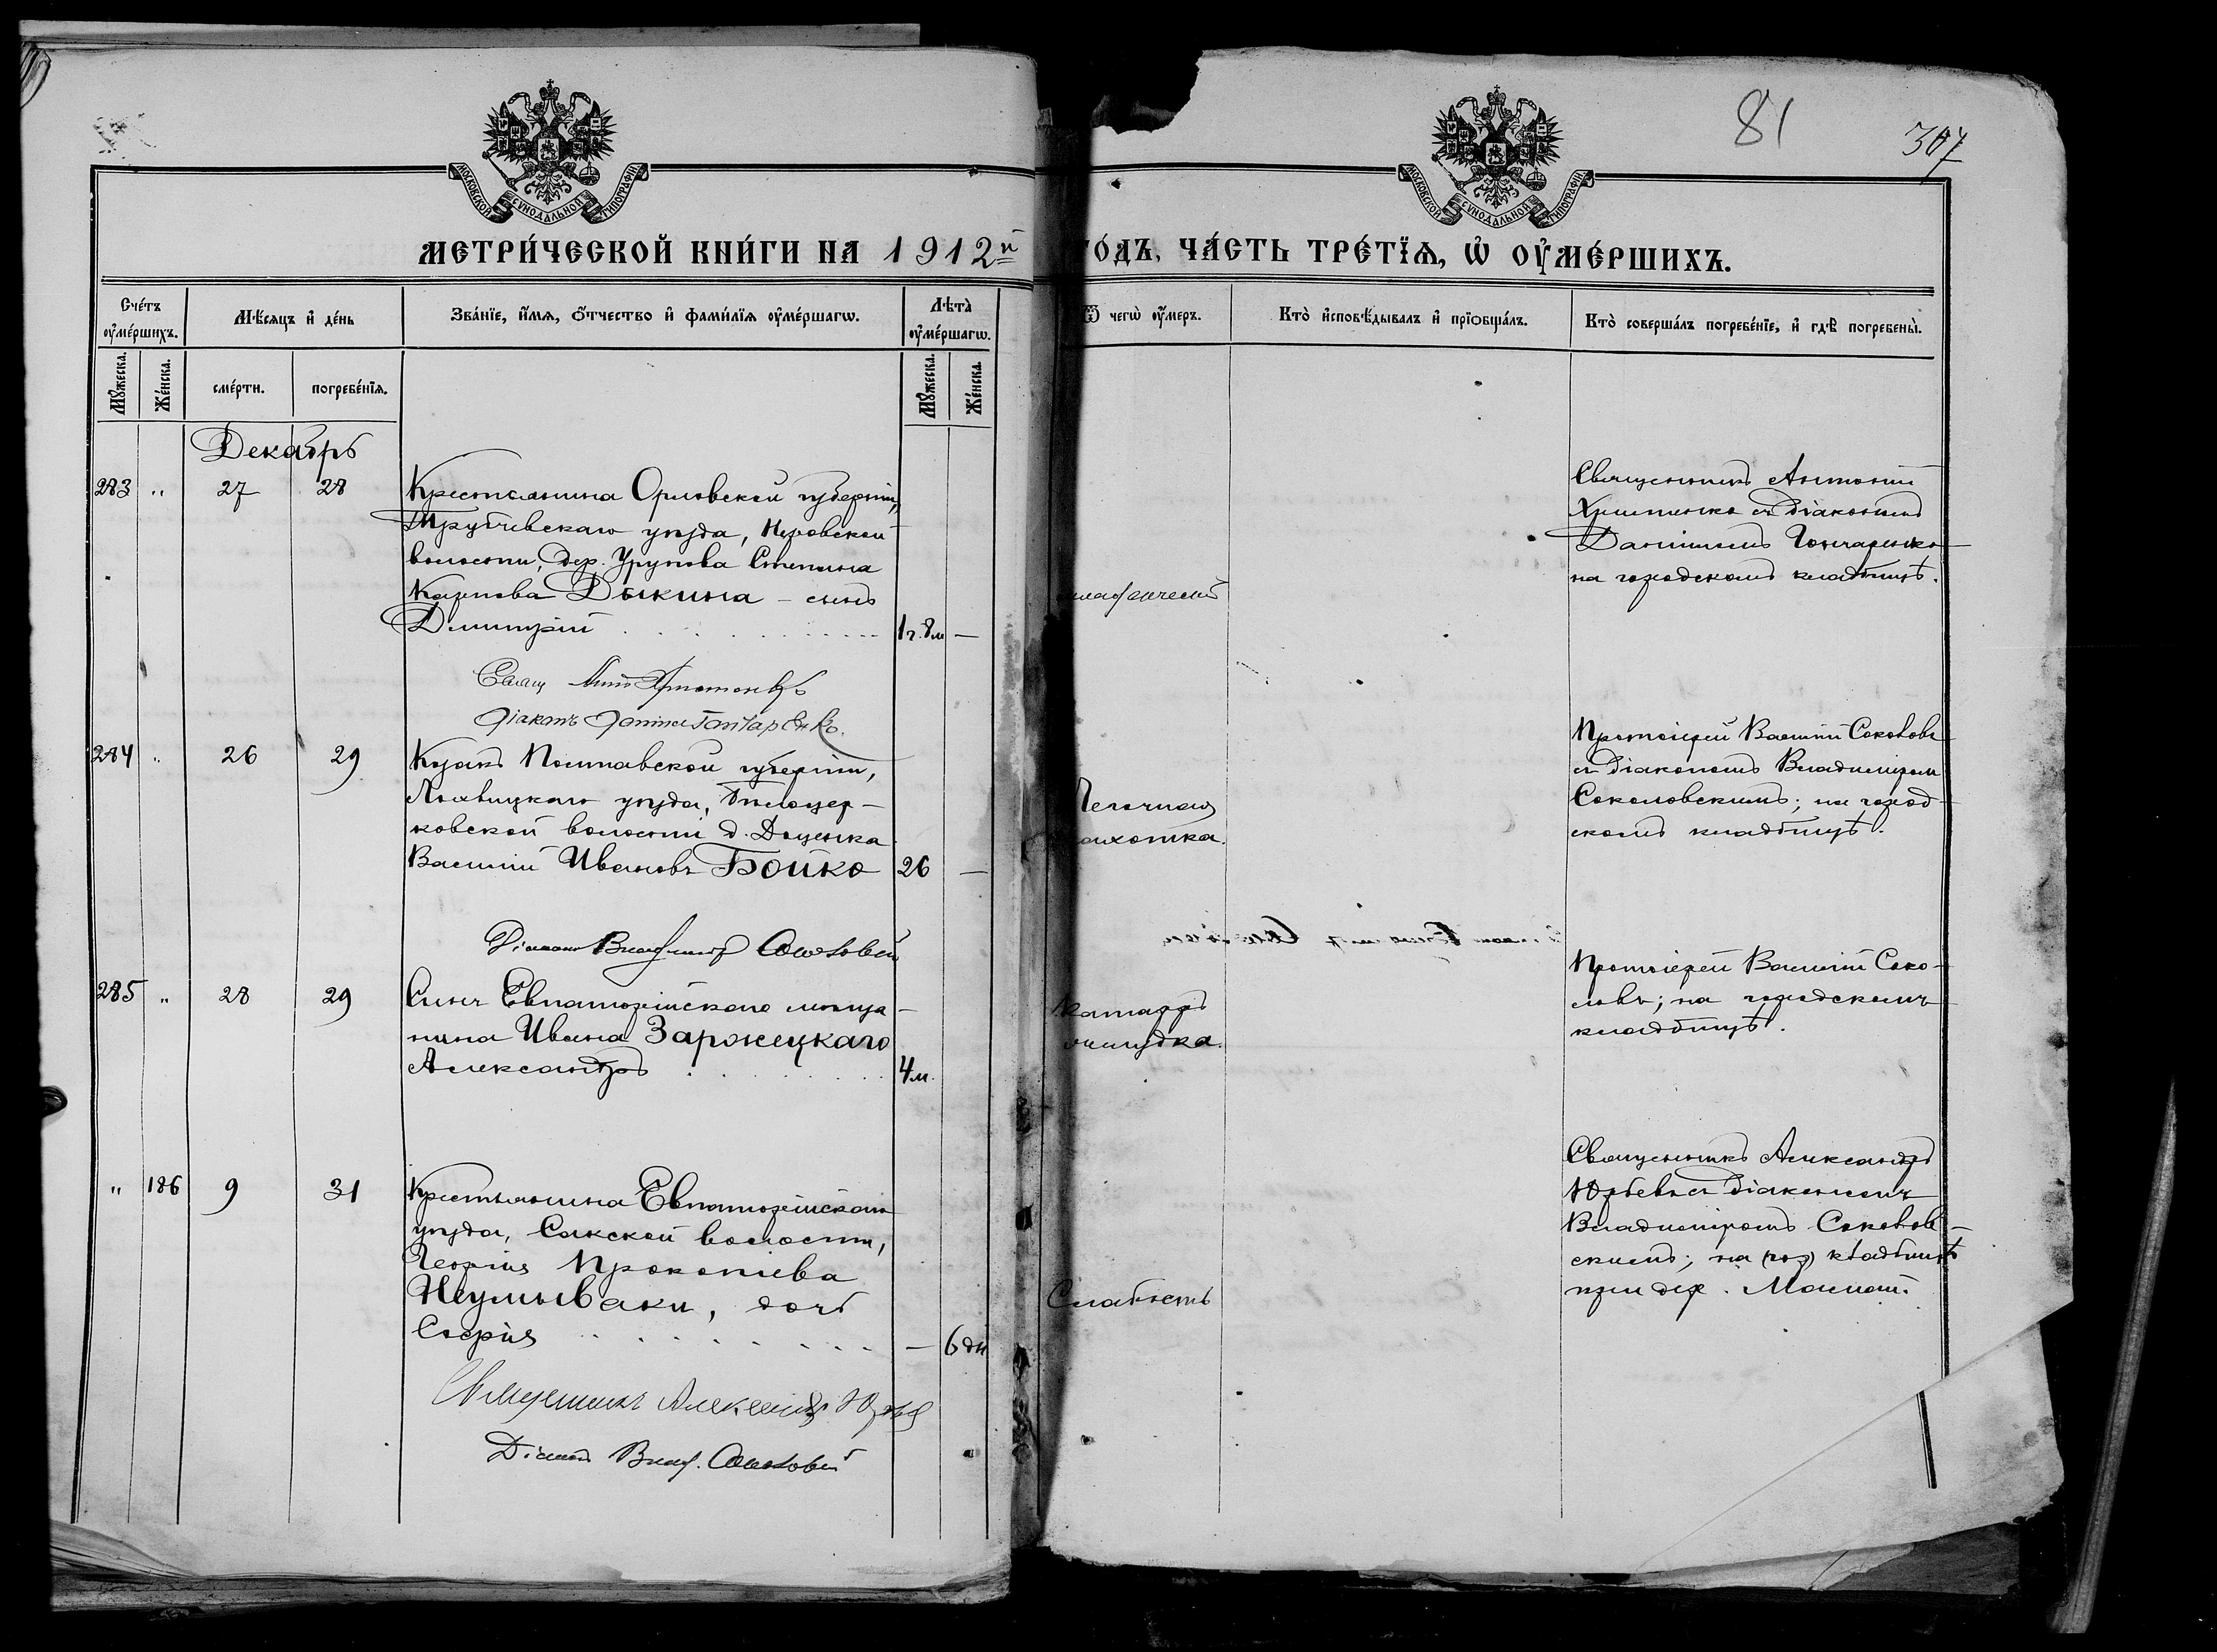 81
307
МОСКОВСКОЙ СѴНОДАЛЬНОЙ ТИПОГРАФІИ
МОСКОВСКОЙ СѴНОДАЛЬНОЙ ТИПОГРАФІИ
МЕТРИ́ЧЕСКОЙ КНИ́ГИ НА 1912й
ГО́ДЪ, ЧА́СТЬ ТРЕ́ТЇѦ, Ѡ҆ ОУ҆МЕ́РШИХЪ.
Сче́тъ оу҆ме́ршихъ.
Мѣ́сяцъ и҆ де́нь
Зва́нїе, и҆́мѧ, ѻ҆́тчество и҆ фами́лїѧ оу҆ме́ршагѡ.
Лѣта̀ оу҆ме́ршагѡ.
Ѿ чегѡ̀ оу҆́меръ.
Кто̀ и҆сповѣ́дывалъ и҆ прїѡбща́лъ.
Кто̀ соверша́лъ погребе́нїе, и҆ гдѣ̀ погребены̀.
Мꙋ́жеска.
Же́нска.
сме́рти.
погребе́нїѧ.
Мꙋ́жеска.
Же́нска.
Декабрь
283 " 27 28
Крестьянина Орловской губерніи,
Трубчевскаго уѣзда,
волости, дер. Степана
Карпова Дыкина – сынъ
Димитрій 1 г. 8 м –
Священникъ Антоній
съ діакономъ
Даніиломъ Гончаренко
на городскомъ кладбищѣ.
Свящ Ант
Діаконъ Даніилъ Гончаренко.
284 " 26 29
Козакъ Полтавской губерніи,
Лохвицкаго уѣзда, Бѣлоцер-
ковской волости д. Доценка
Василій Ивановъ Бойко 26 –
Легочная
чахотка.
Протоіерей Василій Соколовъ
съ діакономъ Владиміромъ
Соколовскимъ; на город-
скомъ кладбищѣ.
Діаконъ Владиміръ Соколовскій
285 " 28 29
Сынъ Евпаторійскаго мѣща-
нина Ивана Заржецкаго
Александръ 4 м.
Катарръ
желудка.
Протоіерей Василій Соко-
ловъ; на городскомъ
кладбищѣ.
" 186 9 31
Крестьянина Евпаторійскаго
уѣзда, Сакской волости,
Георгія Прокопіева
Неумываки, дочь
Софія – 6 дн
Слабость
Священникъ Александръ
Юрьевъ съ діакономъ
Владиміромъ Соколов-
скимъ; на (гор) кладбищѣ
при дер.
Священникъ Александръ Юрьевъ
Діаконъ Влад. Соколовскій